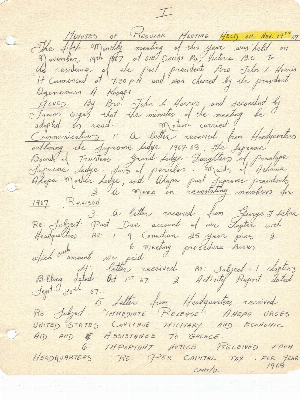 I.
Minutes of Regular Meeting Held on Nov. 19th
The first monthly meeting of this year was held on
November, 19th 1967 at Victoria B.C. in
the residence of the past president Bro John L Harris
It Commenced at 7:30 P.M. and was chaired by the president
Moved By Bro. John L Harris, and seconded by
James that the minutes of the meeting be
adopted as read. Motion carried
Communications 1. A letter received from Headquarters
outlining the Supreme Lodge 1967-68, the Supreme
Board of Trustees Grand Lodge Daughters of Penelope
Supreme Lodge, Sons of Pericles, Maids of Athens
Ahepa Mother Lodge, and Ahepa past supreme presidents
2. A Memo in reinstating members for
1967 Received
3 A letter received from George J
Re Subject: Past Due account of our Chapter with
Headquarters Re: 1 Canadian 25 years pins &
6 meeting procedure
which amount was paid
4 letter received Re: Subject - 1
Billing dated Oct 1st 67 2 Activity Report dated
Sept. 30th 67.
5 letter from Headquarters received
Re Subject "Immediate Release" Ahepa urges
United States Continue Military and Economic
Aid and Assistance to Greece.
6 Important notice received from
Headquarters Re Per Capital tax for year
1968
cont'd.